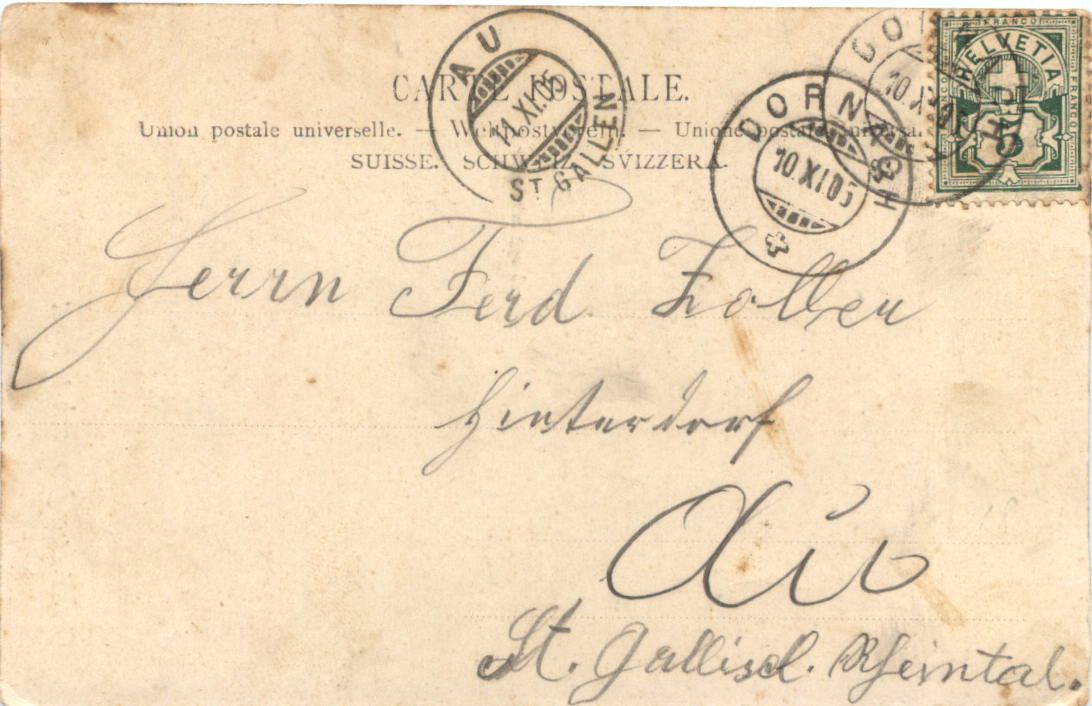 CARTE POSTALE.
Union postale universelle. — Weltpostverein. — Unione postale universale.
SUISSE. SCHWEIZ. SVIZZERA.
AU
11 XI.05
ST GALLEN
DORNACH
10 XI.05
DORNACH
10.XI.05
FRANCO
HELVETIA
FRANCO
FRANCO
5
Herrn Ferd. Zoller
Hinterdorf
Au
St. Gallisch. Rheintal.